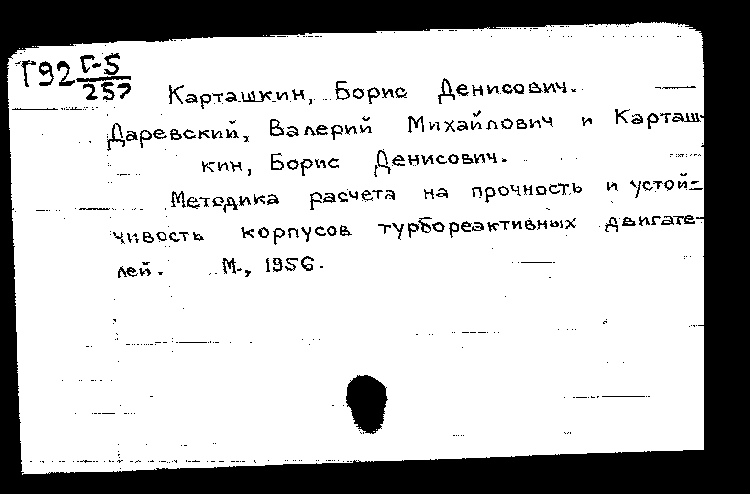 Г92 Г-5
257
Карташкин, Борис Денисович.
Даревский, Валерий Михайлович и Карташ-
кин, Борис Денисович.
Методика расчета на прочность и устой-
чивость корпусов турбореактивных двигате-
лей. М., 1956.